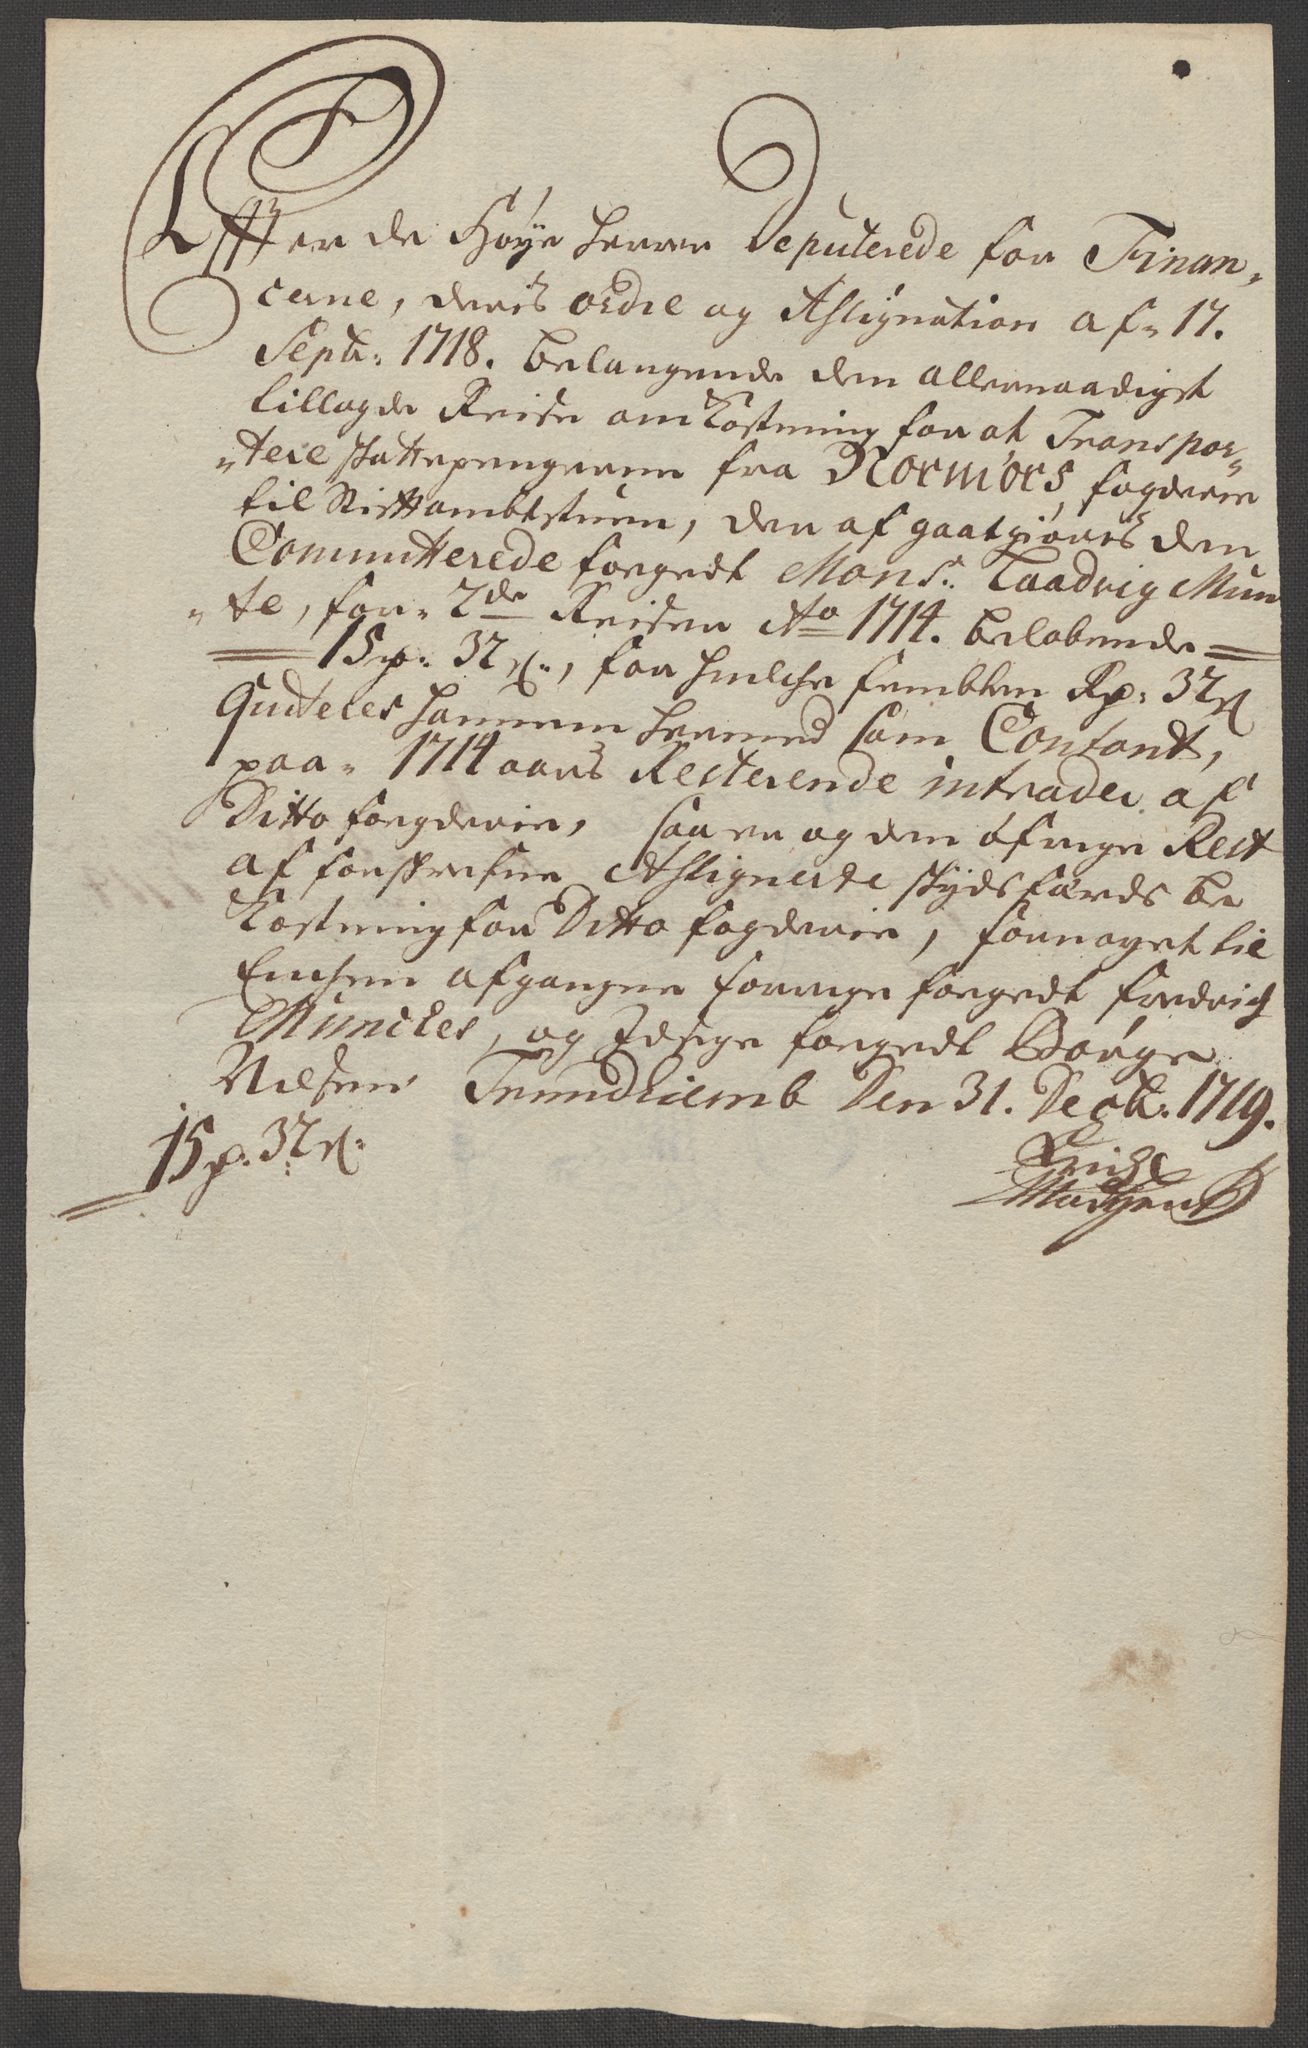 Efter de Høye Herrer Deputerede for Finan„
cerne, deris ordre og Assignation af „17.
Septr: 1718. belangende den allernaadigst
tillagde Reise omkostning for at Transpor„
„tere skattepengerne fra Normørs fogderie
til Stiftambtstuen, der af gaatgiøris den
Committerede foegedt Mons:r Laadvig Mun
„te, for „2de Reiser Ao 1714. beløbende
15 rp: 32 s:, for huilche fembten Rp: 32 s
Quiteres hannem hermed som Contant,
paa „1714 aars Resterende intrader af
Ditto foegderie, saa er og den öfrige Rest
af forskrefne Assignerte skydsfærds be
kostning for Ditto fogderie, fornøyet til
Enchen afgangne forrige foegedt Fredrich
Munches, og Idsige foegedt Børge
Nilsen Trundhiemb Den 31. Dectr: 1719.
15 rp: 32 s: